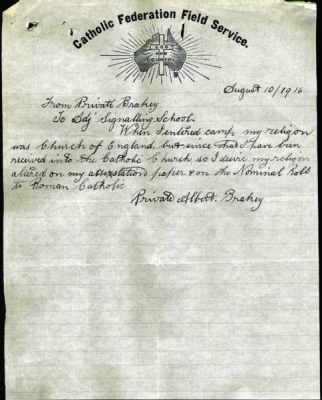 Catholic Federation Field Service.
GOD AND COUNTRY
August 10/1916
From Private Brakey
To Adj Signalling School.
When I entered camp my religion
was Church of England, but since that I have been
received into the Catholic Church so I desire my religion
altered on my attestation paper & on the Nominal Rolls
to Roman Catholic
Private Albert. Brakey